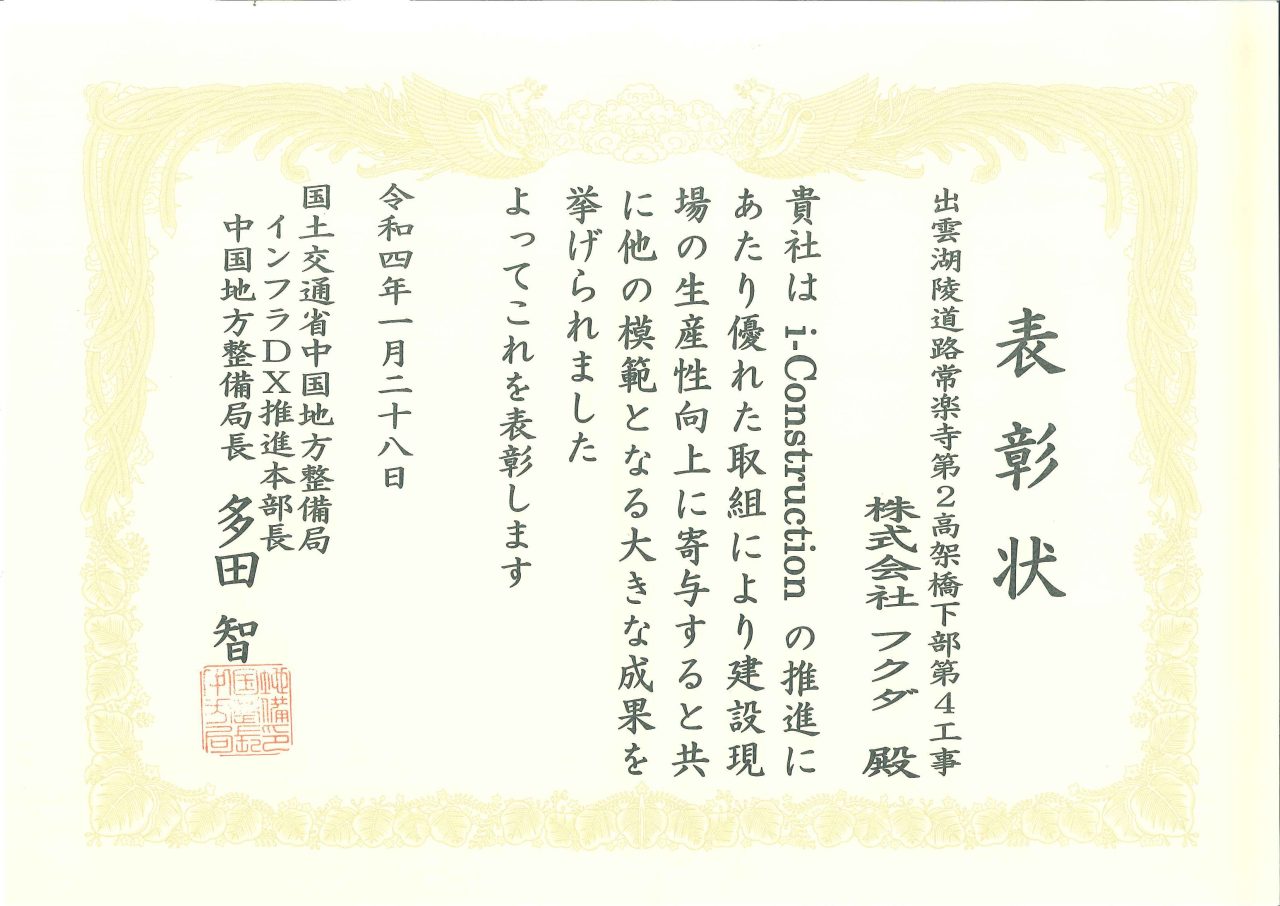 表彰状
出雲湖陵道路常楽寺第2高架橋下部第4工事
株式会社 フクダ 殿
貴社は i-Construction の推進に
あたり優れた取組により建設現
場の生産性向上に寄与すると共
に他の模範となる大きな成果を
挙げられました
よってこれを表彰します
令和四年一月二十八日
国土交通省中国地方整備局
インフラDX推進本部長
中国地方整備局長 多田 智